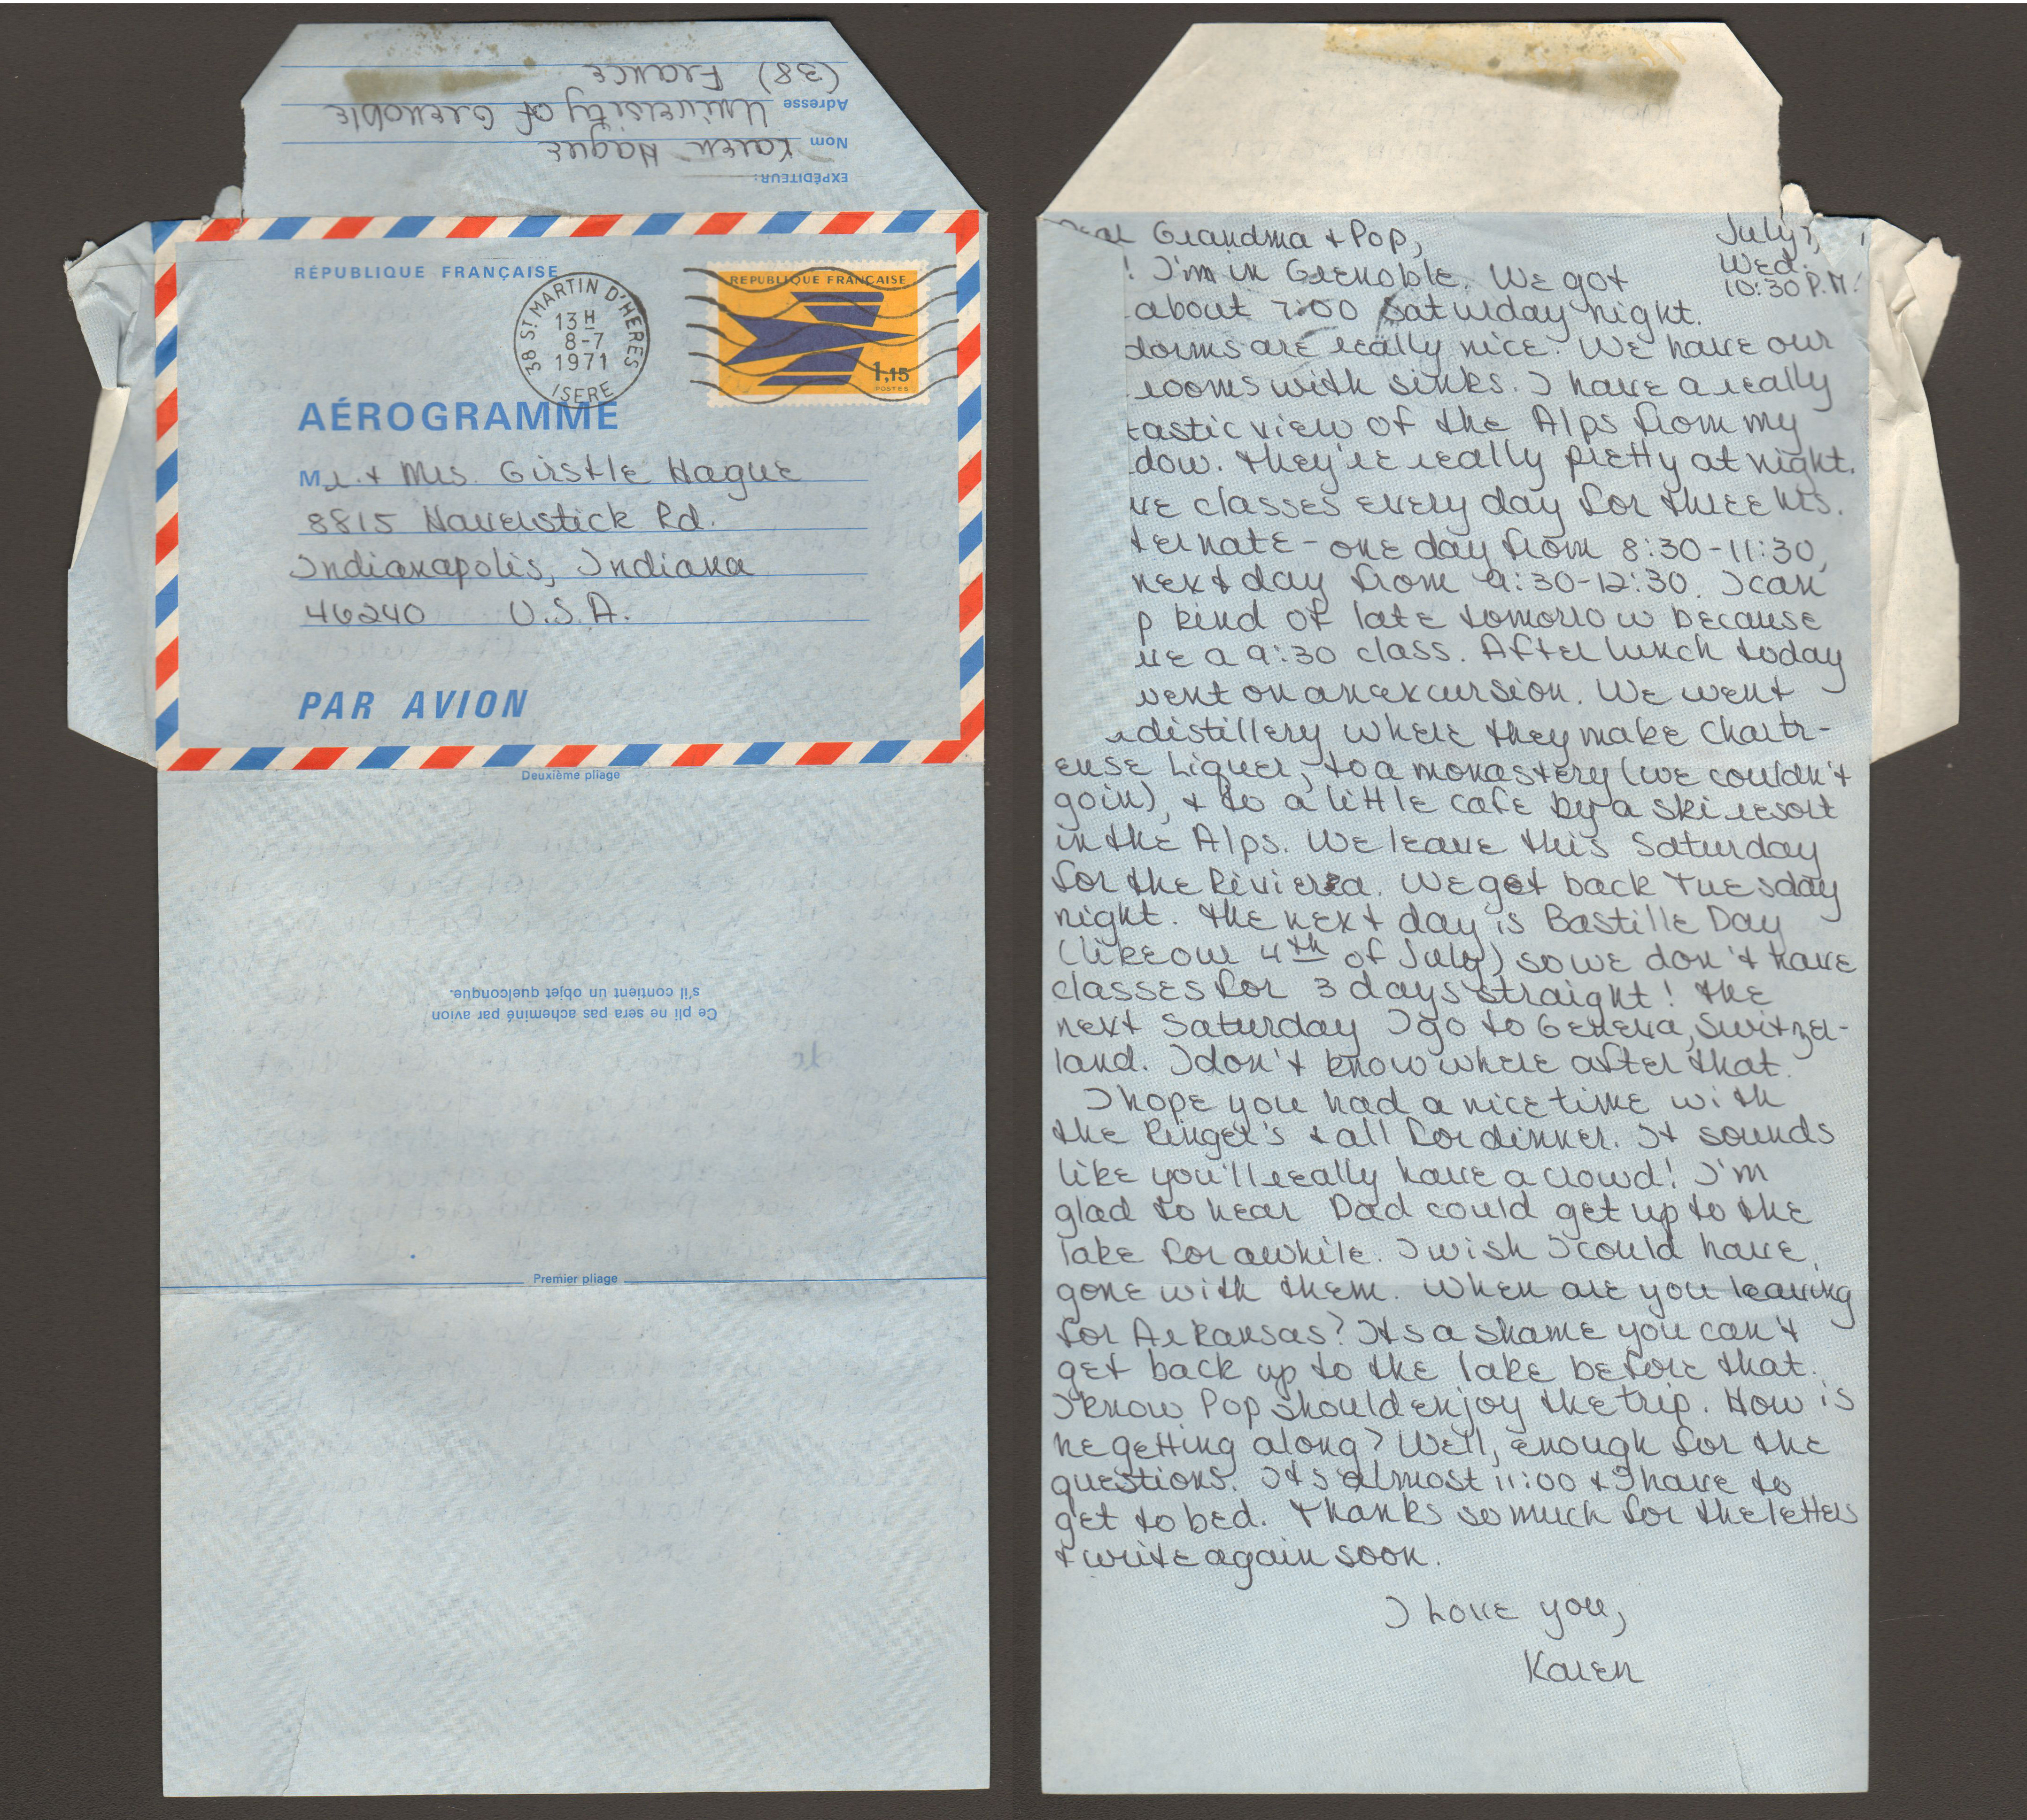 (38) France
Adresse University of Grenoble
Nom Karen Hague
EXPÉDITEUR:
RÉPUBLIQUE FRANÇAISE
38 ST MARTIN D'HERES
13 H
8-7
1971
ISERE
REPUBLIQUE FRANÇAISE
1,15
POSTES
AÉROGRAMME
Mr. + Mrs. Girstle Hague
8815 Haverstick Rd.
Indianapolis, Indiana
46240 U.S.A.
PAR AVION
Deuxième pliage
Ce pli ne sera pas acheminé par avion
s'il contient un objet quelconque.
Premier pliage
Dear Grandma + Pop,
July 7,
Wed.
10:30 P.M.
! I'm in Grenoble. We got
about 7:00 Saturday night.
dorms are really nice. We have our
rooms with sinks. I have a really
tastic view of the Alps from my
dow. They're really pretty at night.
ve classes every day for three hrs.
ternate - one day from 8:30-11:30,
next day from 9:30-12:30. I can
p kind of late tomorrow because
ve a 9:30 class. After lunch today
went on an excursion. We went
a distillery where they make Chartr-
euse Liquer, to a monastery (we couldn't
go in), + to a little cafe by a ski resort
in the Alps. We leave this Saturday
for the Riviera. We get back Tuesday
night. The next day is Bastille Day
(like our 4th of July) so we don't have
classes for 3 days straight! The
next Saturday I go to Geneva, Switzer-
land. I don't know where after that.
I hope you had a nice time with
the Ringer's + all for dinner. It sounds
like you'll really have a crowd! I'm
glad to hear Dad could get up to the
lake for awhile. I wish I could have
gone with them. When are you leaving
for Arkansas? Its a shame you can't
get back up to the lake before that.
I know Pop should enjoy the trip. How is
he getting along? Well, enough for the
questions. Its almost 11:00 + I have to
get to bed. Thanks so much for the letters
+ write again soon.
I Love you,
Karen